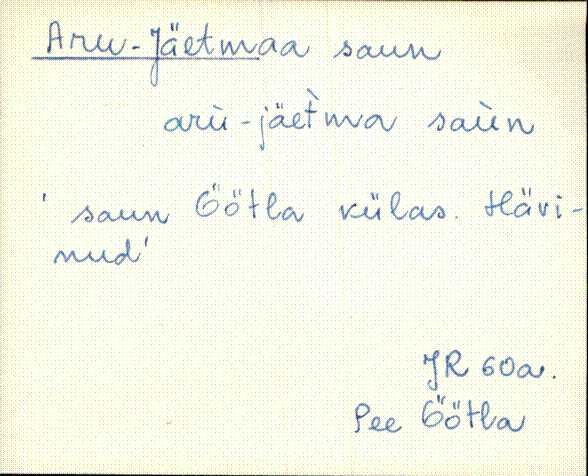 Aru-Jäetmaa saun
arù-jäet̀ma saùn
' saun Öötla külas. Hävi-
nud'
JR 60a.
Pee Öötla